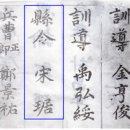 訓導 金亨俊
訓導 禹弘綏
縣令 宋琚
兵曹正郎 鄭景祐